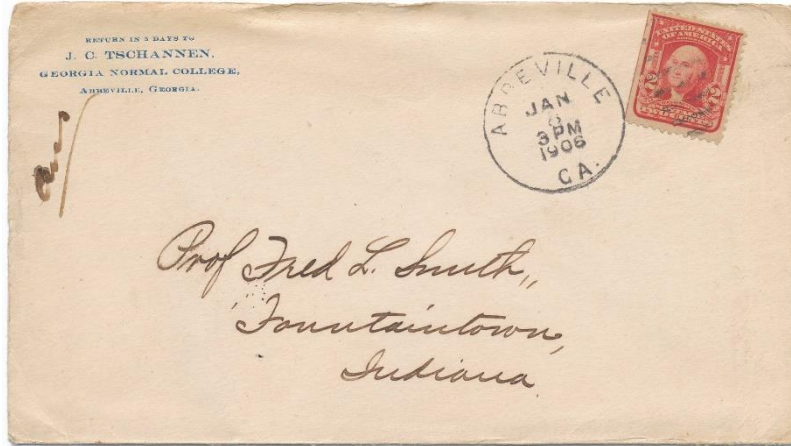 RETURN IN 5 DAYS TO
J. C. TSCHANNEN,
GEORGIA NORMAL COLLEGE,
ABBEVILLE, GEORGIA.
ABBEVILLE
JAN
3 PM
1906
GA.
UNITED STATES
OF AMERICA
2 2
TWO CENTS
Prof Fred L. Smith,
Fountaintown,
Indiana